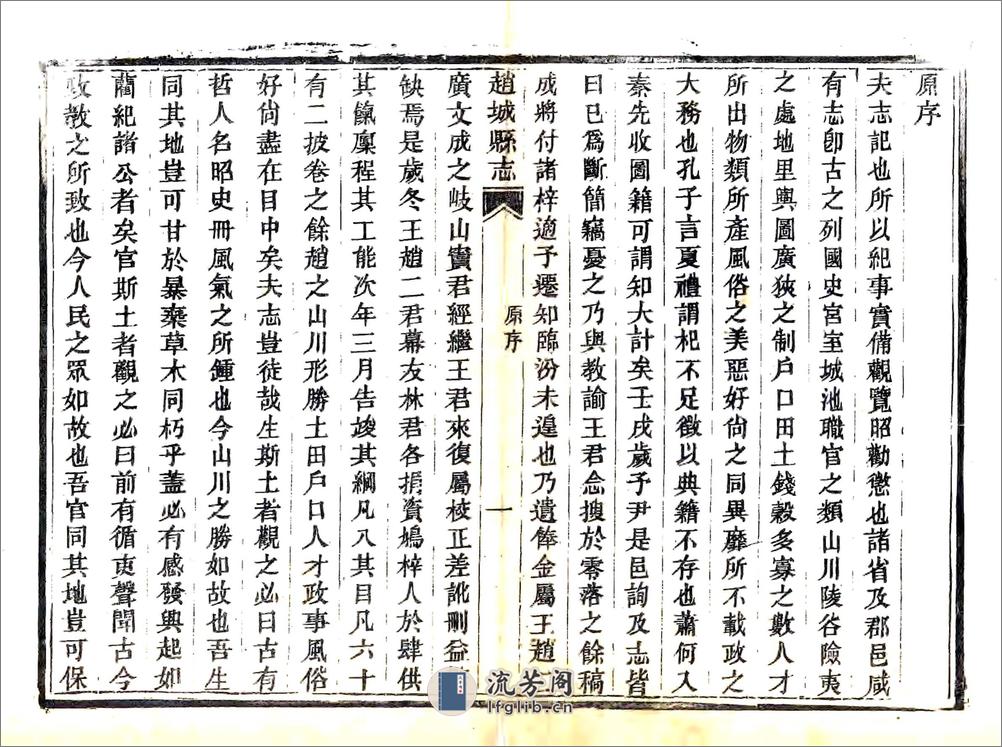 原序
夫志記也所以紀事實備觀覽昭勸懲也諸省及郡邑咸
有志卽古之列國史宮室城池職官之類山川陵谷險夷
之處地里輿圖廣狹之制戶口田土錢穀多寡之數人才
所出物類所產風俗之美惡好尚之同異靡所不載政之
大務也孔子言夏禮謂杞不足徵以典籍不存也蕭何入
秦先收圖籍可謂知大計矣壬戌歲予尹是邑詢及志皆
曰已爲斷簡竊憂之乃與教諭王君念搜於零落之餘稿
成將付諸梓適予遷知臨汾未遑也乃遺俸金屬王趙
趙城縣志
原序
一
廣文成之岐山竇君經繼王君來復屬校正差訛刪益
缺焉是歲冬王趙二君幕友林君各捐資鳩梓人於肆供
其餼廩程其工能次年三月告竣其綱凡八其目凡六十
有二披卷之餘趙之山川形勝土田戶口人才政事風俗
好尙盡在目中矣夫志豈徒哉生斯土者觀之必曰古有
哲人名昭史冊風氣之所鍾也今山川之勝如故也吾生
同其地豈可甘於暴棄草木同朽乎蓋必有感發興起如
藺紀諸公者矣官斯土者觀之必曰前有循吏聲聞古今
政教之所致也今人民之眾如故也吾官同其地豈可保
流芳阁
lfglib.cn